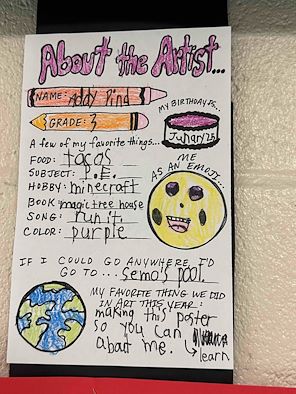 About the Artist...
NAME: Addy Ping
GRADE: 3
MY BIRTHDAY IS...
Junary 25
A few of my favorite things...
FOOD: tacos
SUBJECT: P.E.
HOBBY: minecraft
BOOK magic tree house
SONG: run it.
COLOR: purple
ME
AS AN EMOJI...
IF I COULD GO ANYWHERE, I'D
GO TO... semo's pool.
MY FAVORITE THING WE DID
IN ART THIS YEAR:
making this poster
so you can
learn
about me.